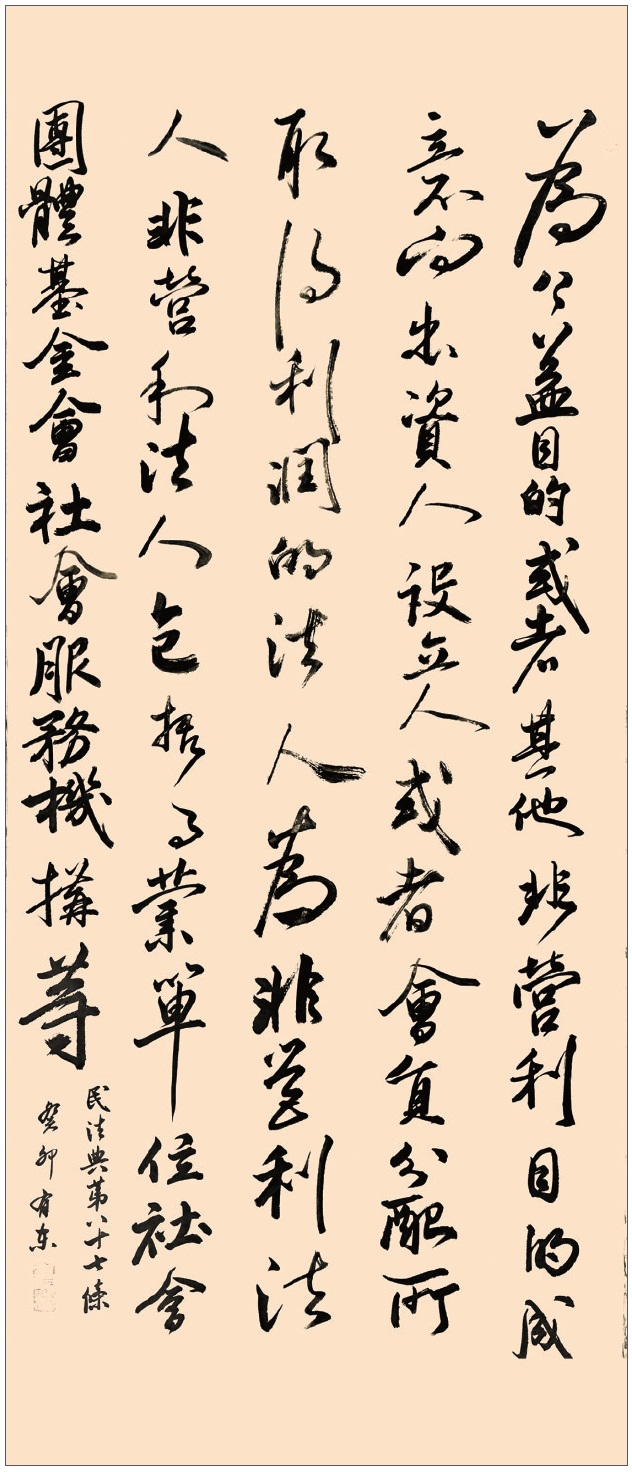 為公益目的或者其他非營利目的成
立不向出資人設立人或者會員分配所
取得利潤的法人為非營利法
人非營利法人包括事業單位社會
團體基金會社會服務機構等
民法典第八十七條
癸卯有东